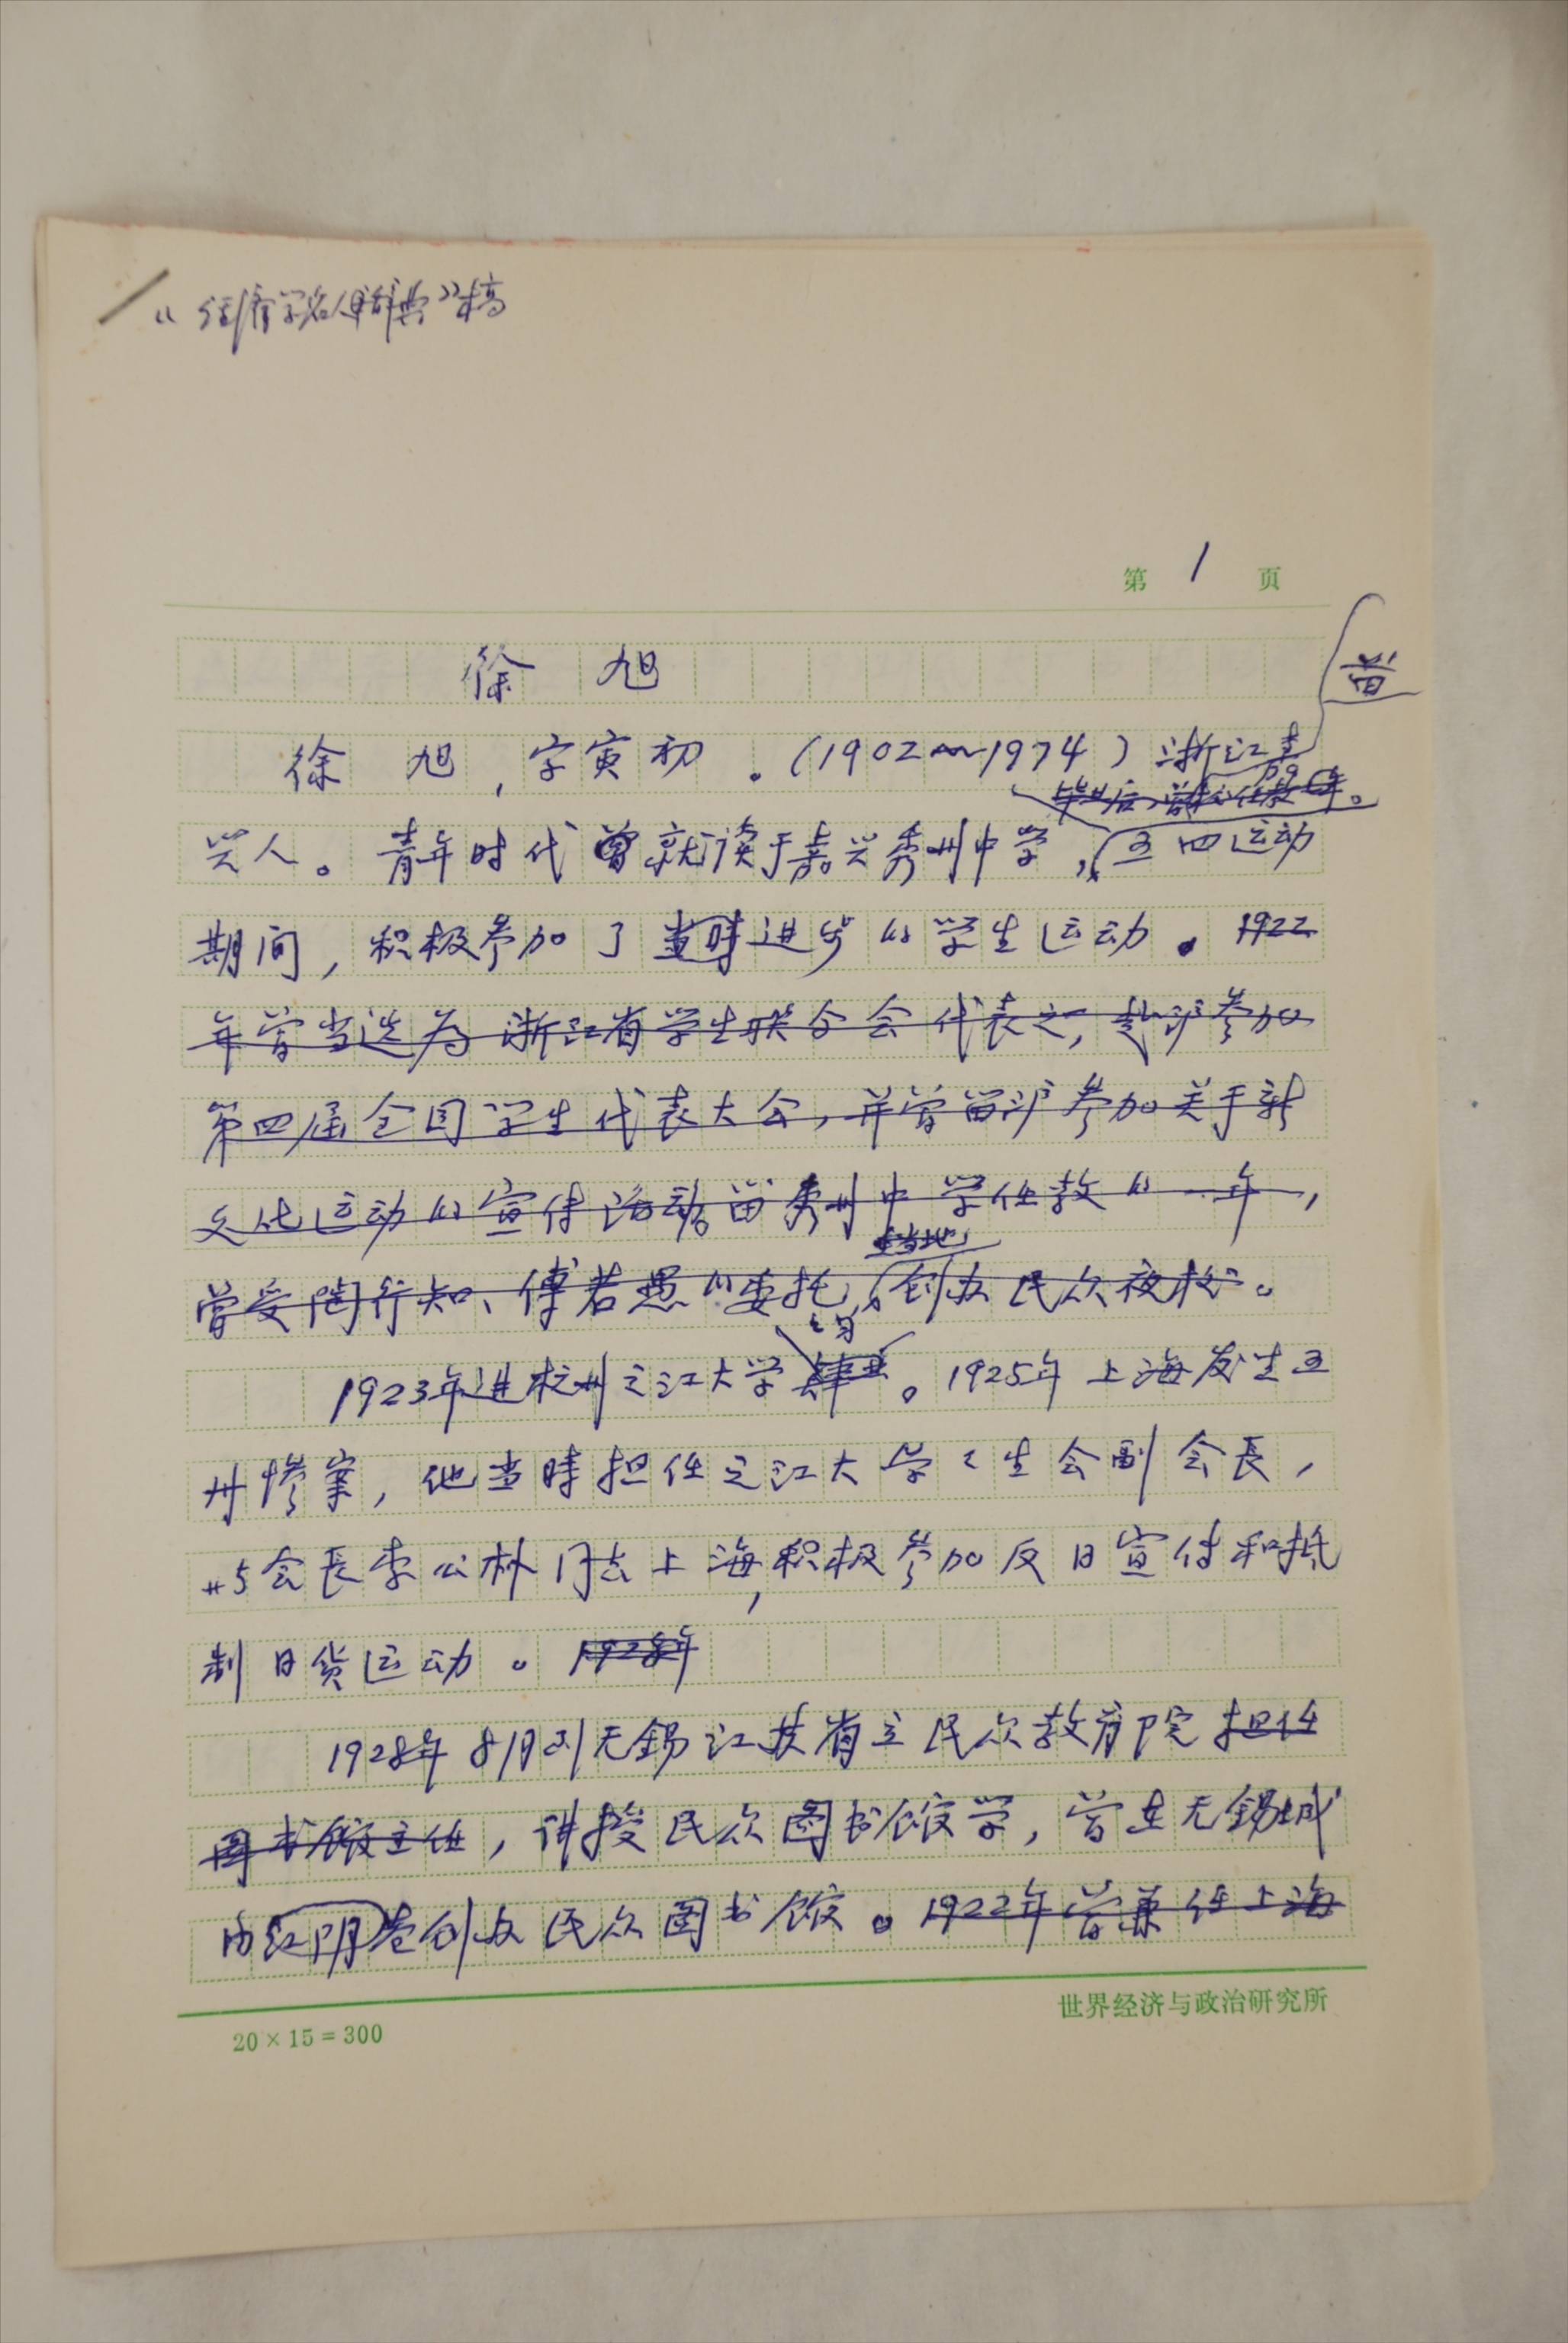 《经济学名人辞典》稿
第 1 页
徐 旭
曾
徐 旭，字寅初。（1902～1974）浙江嘉
毕业后，留校任教一年。
兴人。青年时代曾就读于嘉兴秀州中学，五四运动
期间，积极参加了当时进步的学生运动。1922
年曾当选为浙江省学生联合会代表之一，赴沪参加
第四届全国学生代表大会，并曾留沪参加关于新
文化运动的宣传活动。留秀州中学任教的一年，
当地
曾受陶行知、傅若愚的委托，创办民众夜校。
学习
1923年进杭州之江大学肄业。1925年上海发生五
卅惨案，他当时担任之江大学学生会副会长，
与会长李公朴同去上海，积极参加反日宣传和抵
制日货运动。1928年
1928年8月到无锡江苏省立民众教育院担任
图书馆主任，讲授民众图书馆学，曾在无锡城
内江阴巷创办民众图书馆。1922年曾兼任上海
20×15=300
世界经济与政治研究所